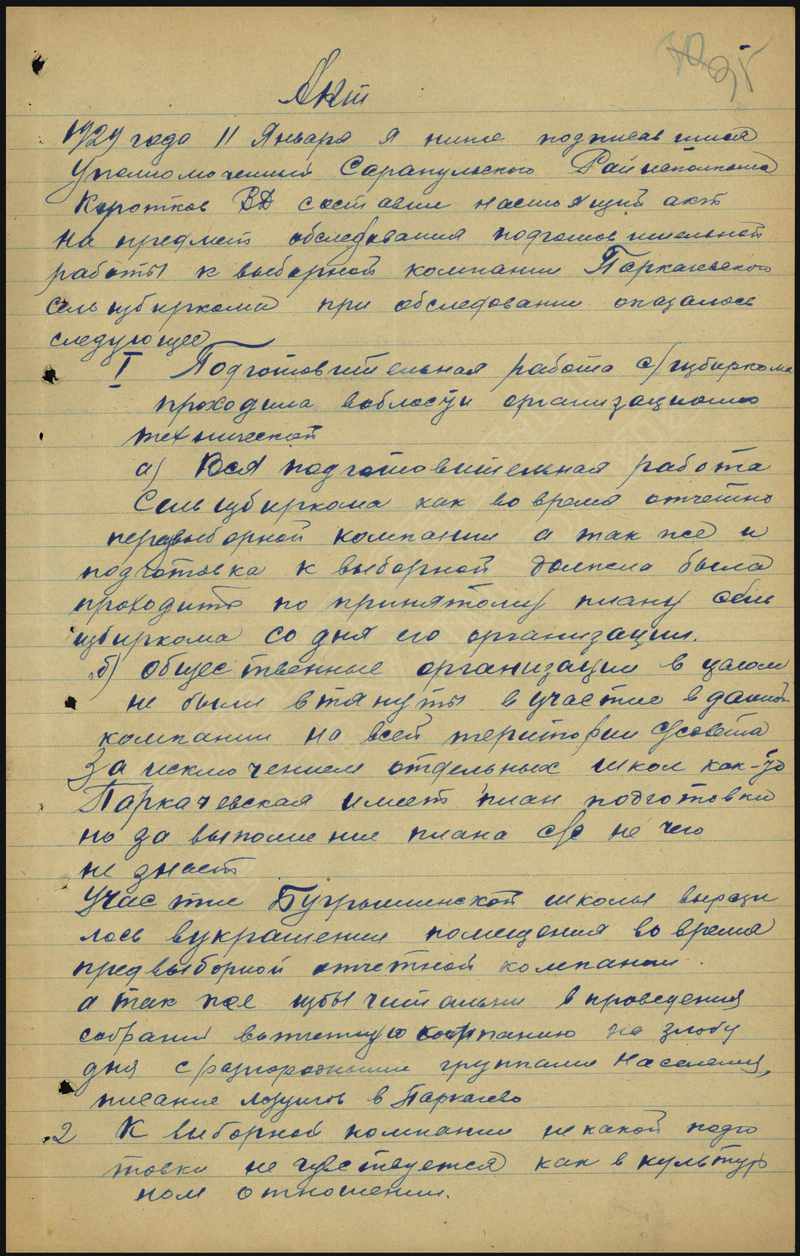 Акт
1929 года 11 Января я ниже подписавшийся
Уполномоченный Сарапульского Райисполкома
Коротков ВД составил настоящий акт
на предмет обследования подготовительной
работы к выборной компании Паркачевского
Сельизбиркома при обследовании оказалось
следующее
I Подготовительная работа с/избиркома
проходила вобласти организационно
технической
а) Вся подготовительная работа
Сельизбиркома как во время отчетно
перевыборной компании а так же и
подготовка к выборной должна была
проходить по принятому плану сель
избиркома со дня его организации.
б) Общественные организации в целом
не были втянуты в участие в данной
компании на всей територии с/совета
За исключением отдельных школ как-то
Паркачевская имеет план подготовки
но за выполнение плана с/с не чего
не знает
Участие Бугрышинской школы вырази
лось вукрашении помещения во время
предвыборной отчетной компании.
а так же избы читальни в проведения
собрания в компанию на злобу
дня с разнородными группами Населения,
писание лозунгов в Паркачево
2 К выборной компании некакой подго
товки не чувствуется как в культур
ном отношении.